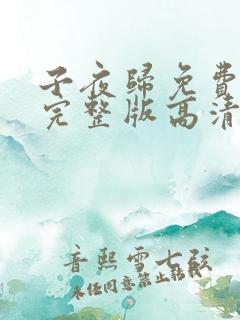 子夜歸免費
完整版高清
音熙雪七弦
未经同意禁止转载